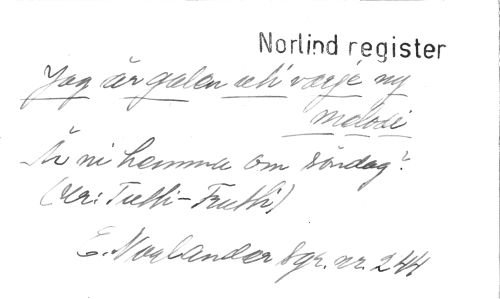 Norlind register
Jag är galen uti varje ny
melodi
Är ni hemma om söndag?
(Ur: Tutti-Frutti)
E. Norlander Sgr. nr. 244